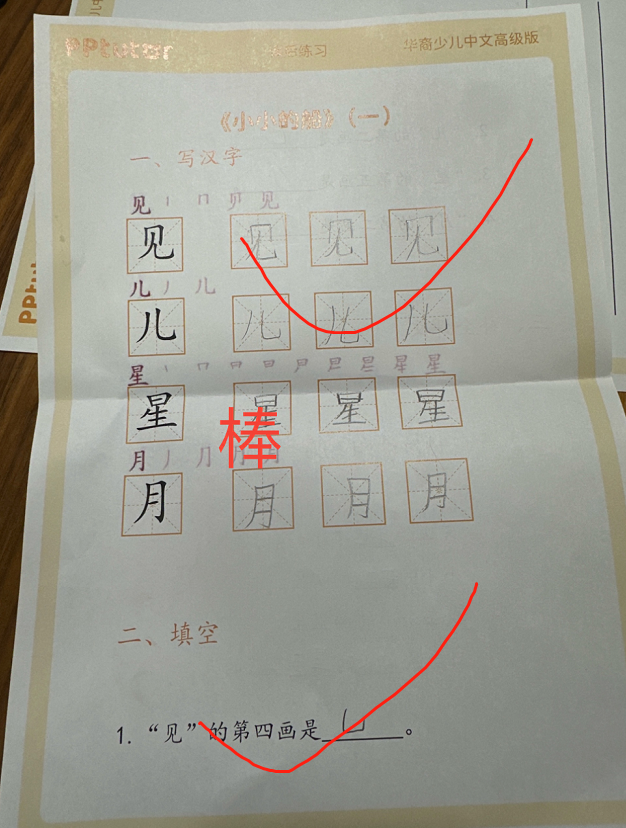 PPtutor 练习 华裔少儿中文高级版
《小小的船》(一)
一、写汉字
见 丨 冂 贝 见
见 见 见 见
儿 丿 儿
儿 儿 儿 儿
星
星 星 星 星
棒
月 丿 ⺆ 月 月
月 月 月 月
二、填空
1. “见”的第四画是 乚 。
PPtu